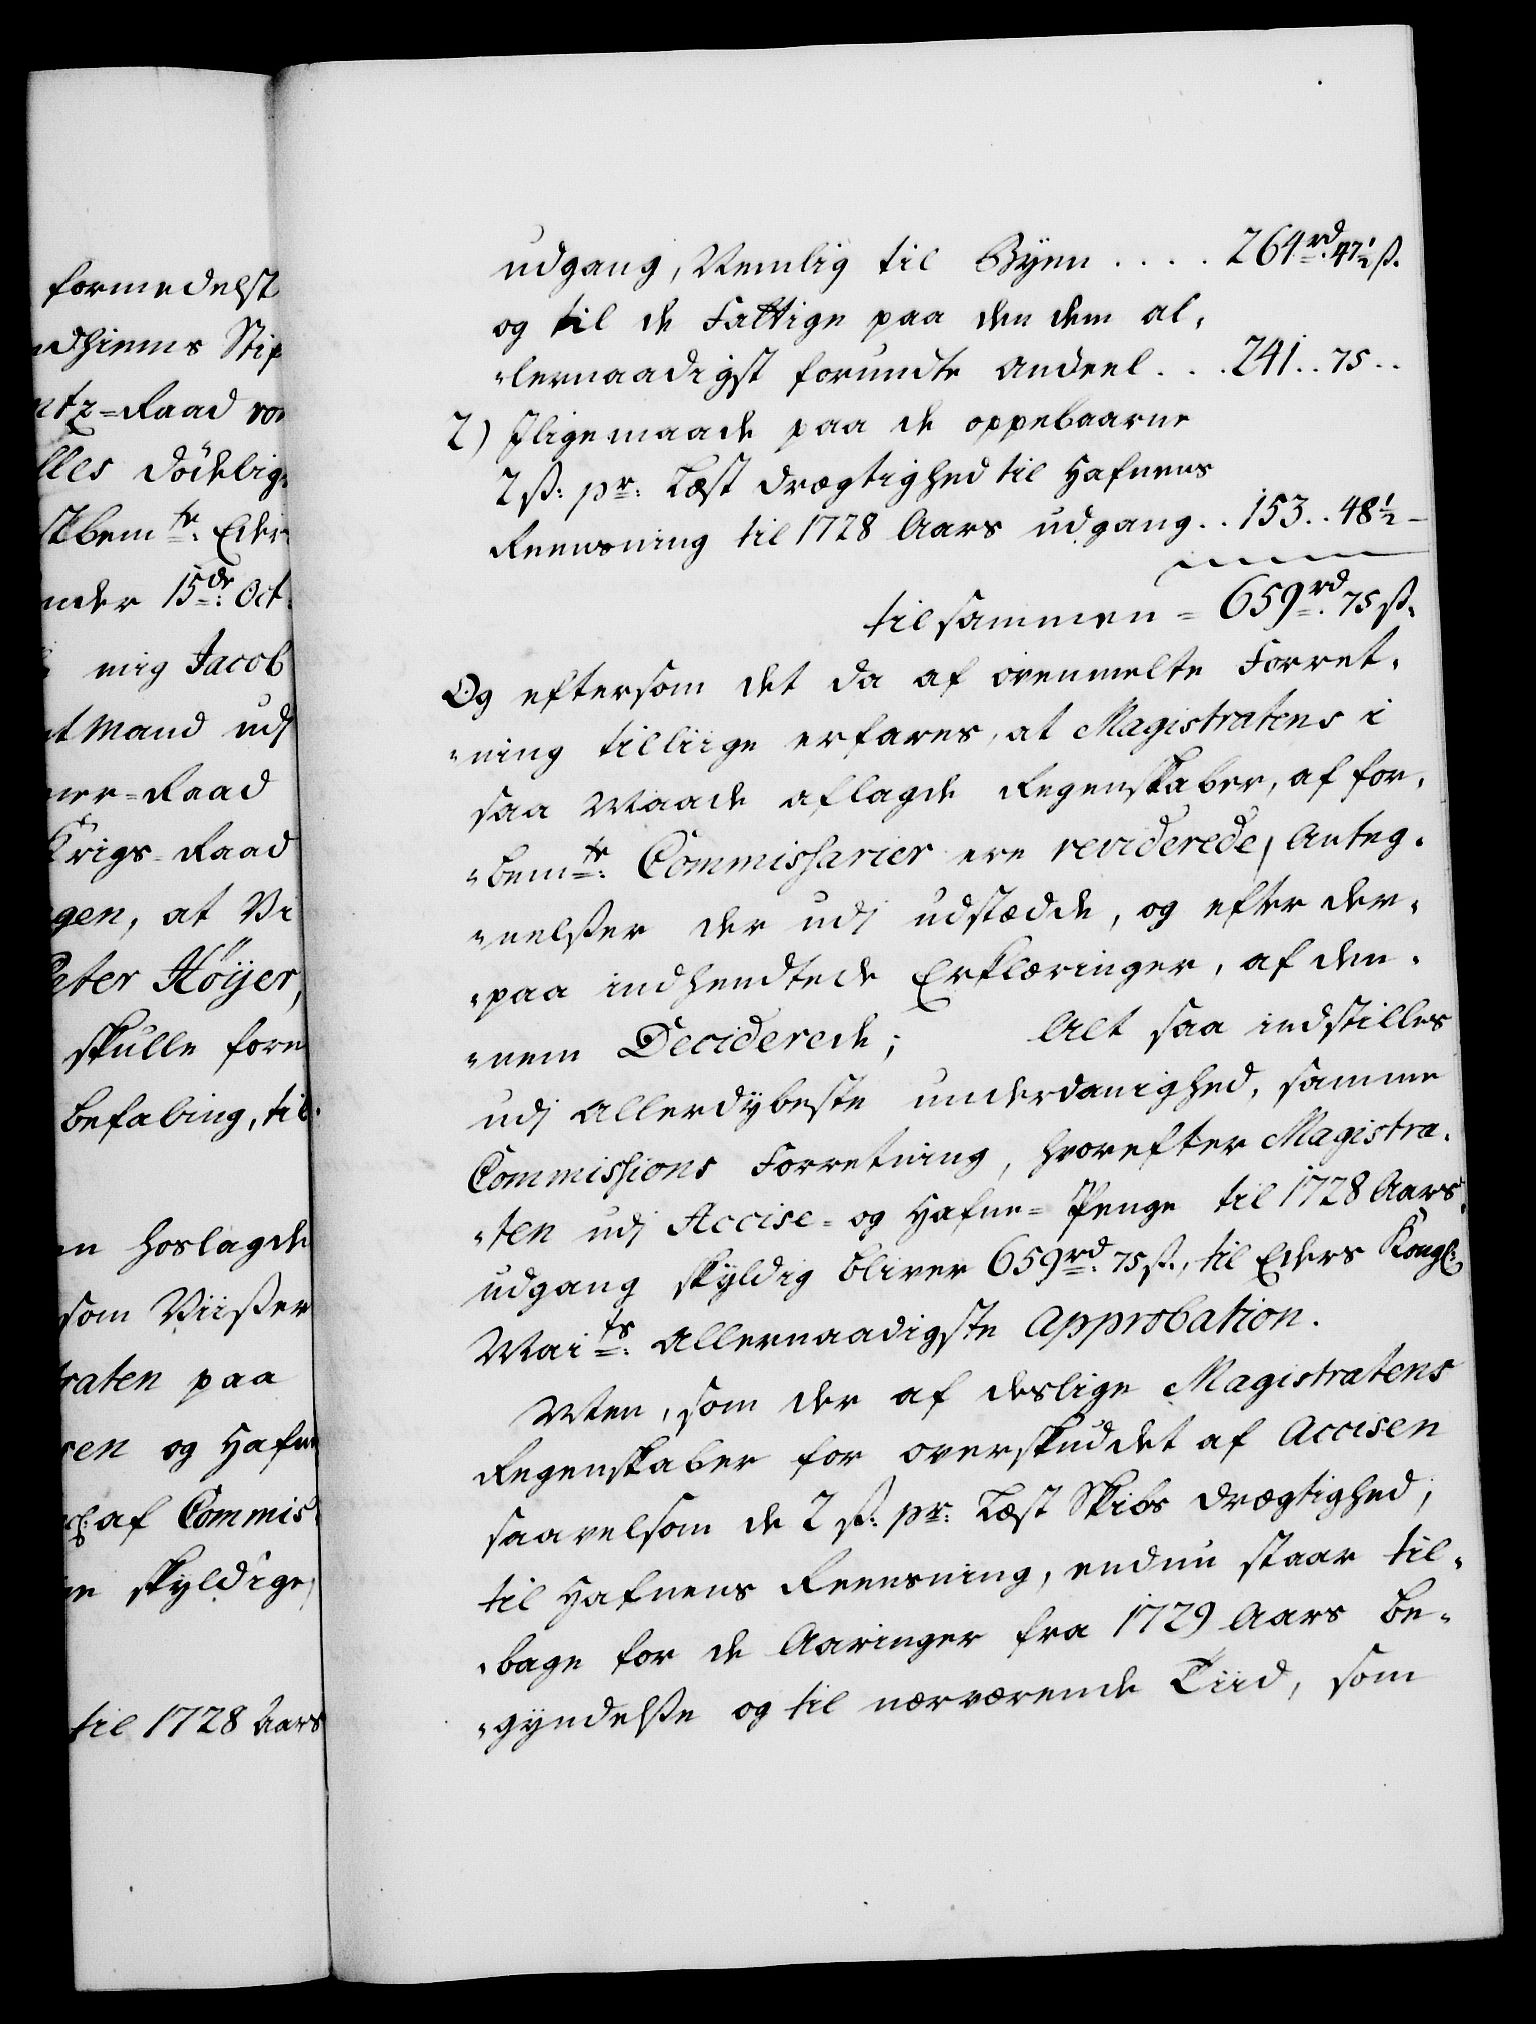 formedelst
ndhiems Stif
ntz=Raad von
lles Dödelig
skbem.te Eders
nder 15de Oct:
mig Jacob
t Mand udj
mer=Raad
Krigs=Raad
gen, at Vi
Peter Höyer,
skulle fore
befaling, til
n hoslagde
som Viißer
raten paa
sen og Hafne
af Commis
skyldige
til 1728 Aars
udgang, Nemlig til Byen . . . . 264rd. 47½ ß.
og til de Fattige paa den dem al-
-lernaadigst forundte Andeel . . . 241 . . 75 . .
2) Jligemaade paa de oppebaarne
2 ß: pr: Læst drægtighed til Hafnens
Reensning til 1728 Aars udgang . . 153 . . 48½ -
tilsammen = 659rd. 75 ß.
Og eftersom det da af ovenmelte Forret-
-ning tilliige erfares, at Magistratens i
saa Maade aflagde Regenskaber, af for-
-bemte: Commissarier ere reviderede, Anteg-
-nelßer der udj udstædde, og efter der-
-paa indhendtede Erklæringer, af den-
-nem Deciderede; Alt saa indstilles
udj Allerdybeste underdanighed, samme
Commissions Forretning, hvorefter Magistra-
-ten udj Accise= og Hafne= Penge til 1728 Aars
udgang skyldig bliver 659rd. 75 ß., til Eders Kongl:
Maits: Allernaadigste Approbation.
Men, som der af deslige Magistratens
Regenskaber for overskuddet af Accisen
saavelsom de 2 ß: pr: Læst Skibs drægtighed,
til Hafnens Reensning, endnu staar til-
-bage for de Aaringer fra 1729 Aars be-
-gyndelße og til nærværende Tiid, som